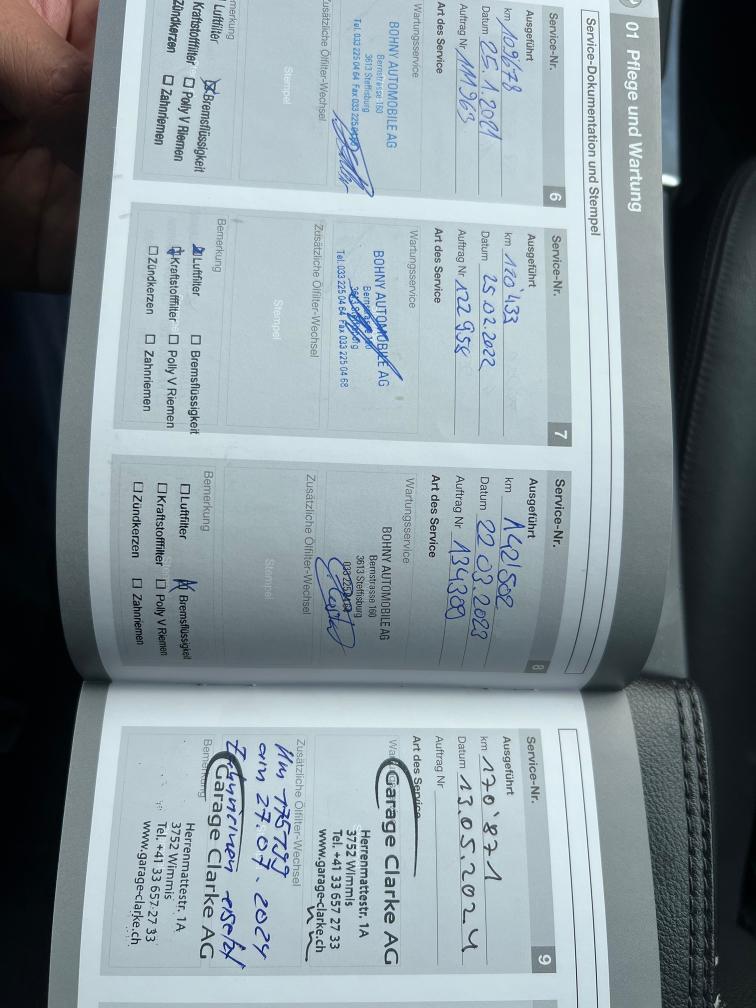 01 Pflege und Wartung
Service-Dokumentation und Stempel
Service-Nr. 6
Ausgeführt
km 109678
Datum 25.1.2021
Auftrag Nr 111963
Art des Service
Wartungsservice
BOHNY AUTOMOBILE AG
Bernstrasse 160
3613 Steffisburg
Tel. 033 225 04 64 Fax 033 225
Zusätzliche Ölfilter-Wechsel
Stempel
merkung
Luftfilter
Bremsflüssigkeit
Kraftstofffilter
Polly V Riemen
Zündkerzen
Zahnriemen
Service-Nr. 7
Ausgeführt
km 120'433
Datum 25.02.2022
Auftrag Nr 122958
Art des Service
Wartungsservice
BOHNY AUTOMOBILE AG
Tel. 033 225 04 64 Fax 033 225 04 68
Zusätzliche Ölfilter-Wechsel
Stempel
Bemerkung
Luftfilter
Bremsflüssigkeit
Kraftstofffilter
Polly V Riemen
Zündkerzen
Zahnriemen
Service-Nr. 8
Ausgeführt
km 142'502
Datum 22.03.2023
Auftrag Nr 134309
Art des Service
Wartungsservice
BOHNY AUTOMOBILE AG
Bernstrasse 160
3613 Steffisburg
Zusätzliche Ölfilter-Wechsel
Stempel
Bemerkung
Luftfilter
Bremsflüssigkeit
Kraftstofffilter
Polly V Riemen
Zündkerzen
Zahnriemen
Service-Nr. 9
Ausgeführt
km 170'871
Datum 13.05.2024
Auftrag Nr
Art des Service
Garage Clarke AG
Herrenmattestr. 1A
3752 Wimmis
Tel. +41 33 657 27 33
www.garage-clarke.ch
Zusätzliche Ölfilter-Wechsel
km 175199
am 27.07.2024
Zahnriemen ersetzt
Bemerkung
Garage Clarke AG
Herrenmattestr. 1A
3752 Wimmis
Tel. +41 33 657 27 33
www.garage-clarke.ch